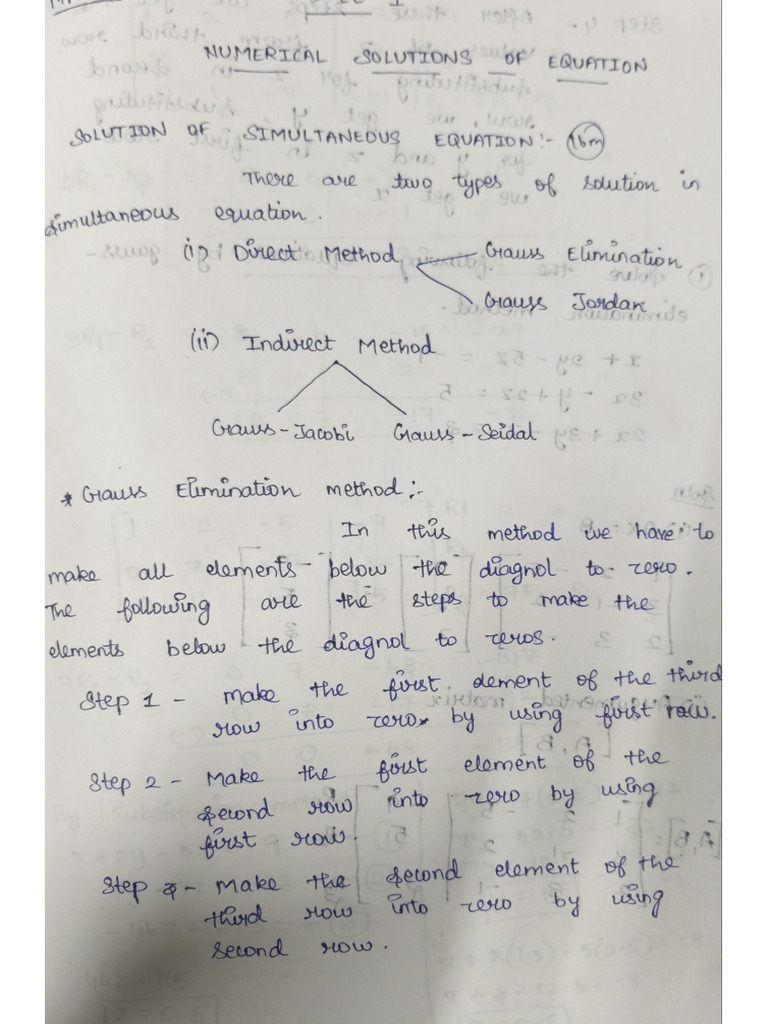 NUMERICAL SOLUTIONS OF EQUATION
SOLUTION OF SIMULTANEOUS EQUATION:- (16m)
There are two types of solution in
simultaneous equation.
(i) Direct Method Gauss Elimination
Gauss Jordan
(ii) Indirect Method
Gauss-Jacobi Gauss-Seidal
* Gauss Elimination method:-
In this method we have to
make all elements below the diagnol to zero.
The following are the steps to make the
elements below the diagnol to zeros.
Step 1 - Make the first element of the third
row into zero by using first row.
Step 2 - Make the first element of the
second row into zero by using
first row.
Step 3 - Make the second element of the
third row into zero by using
second row.